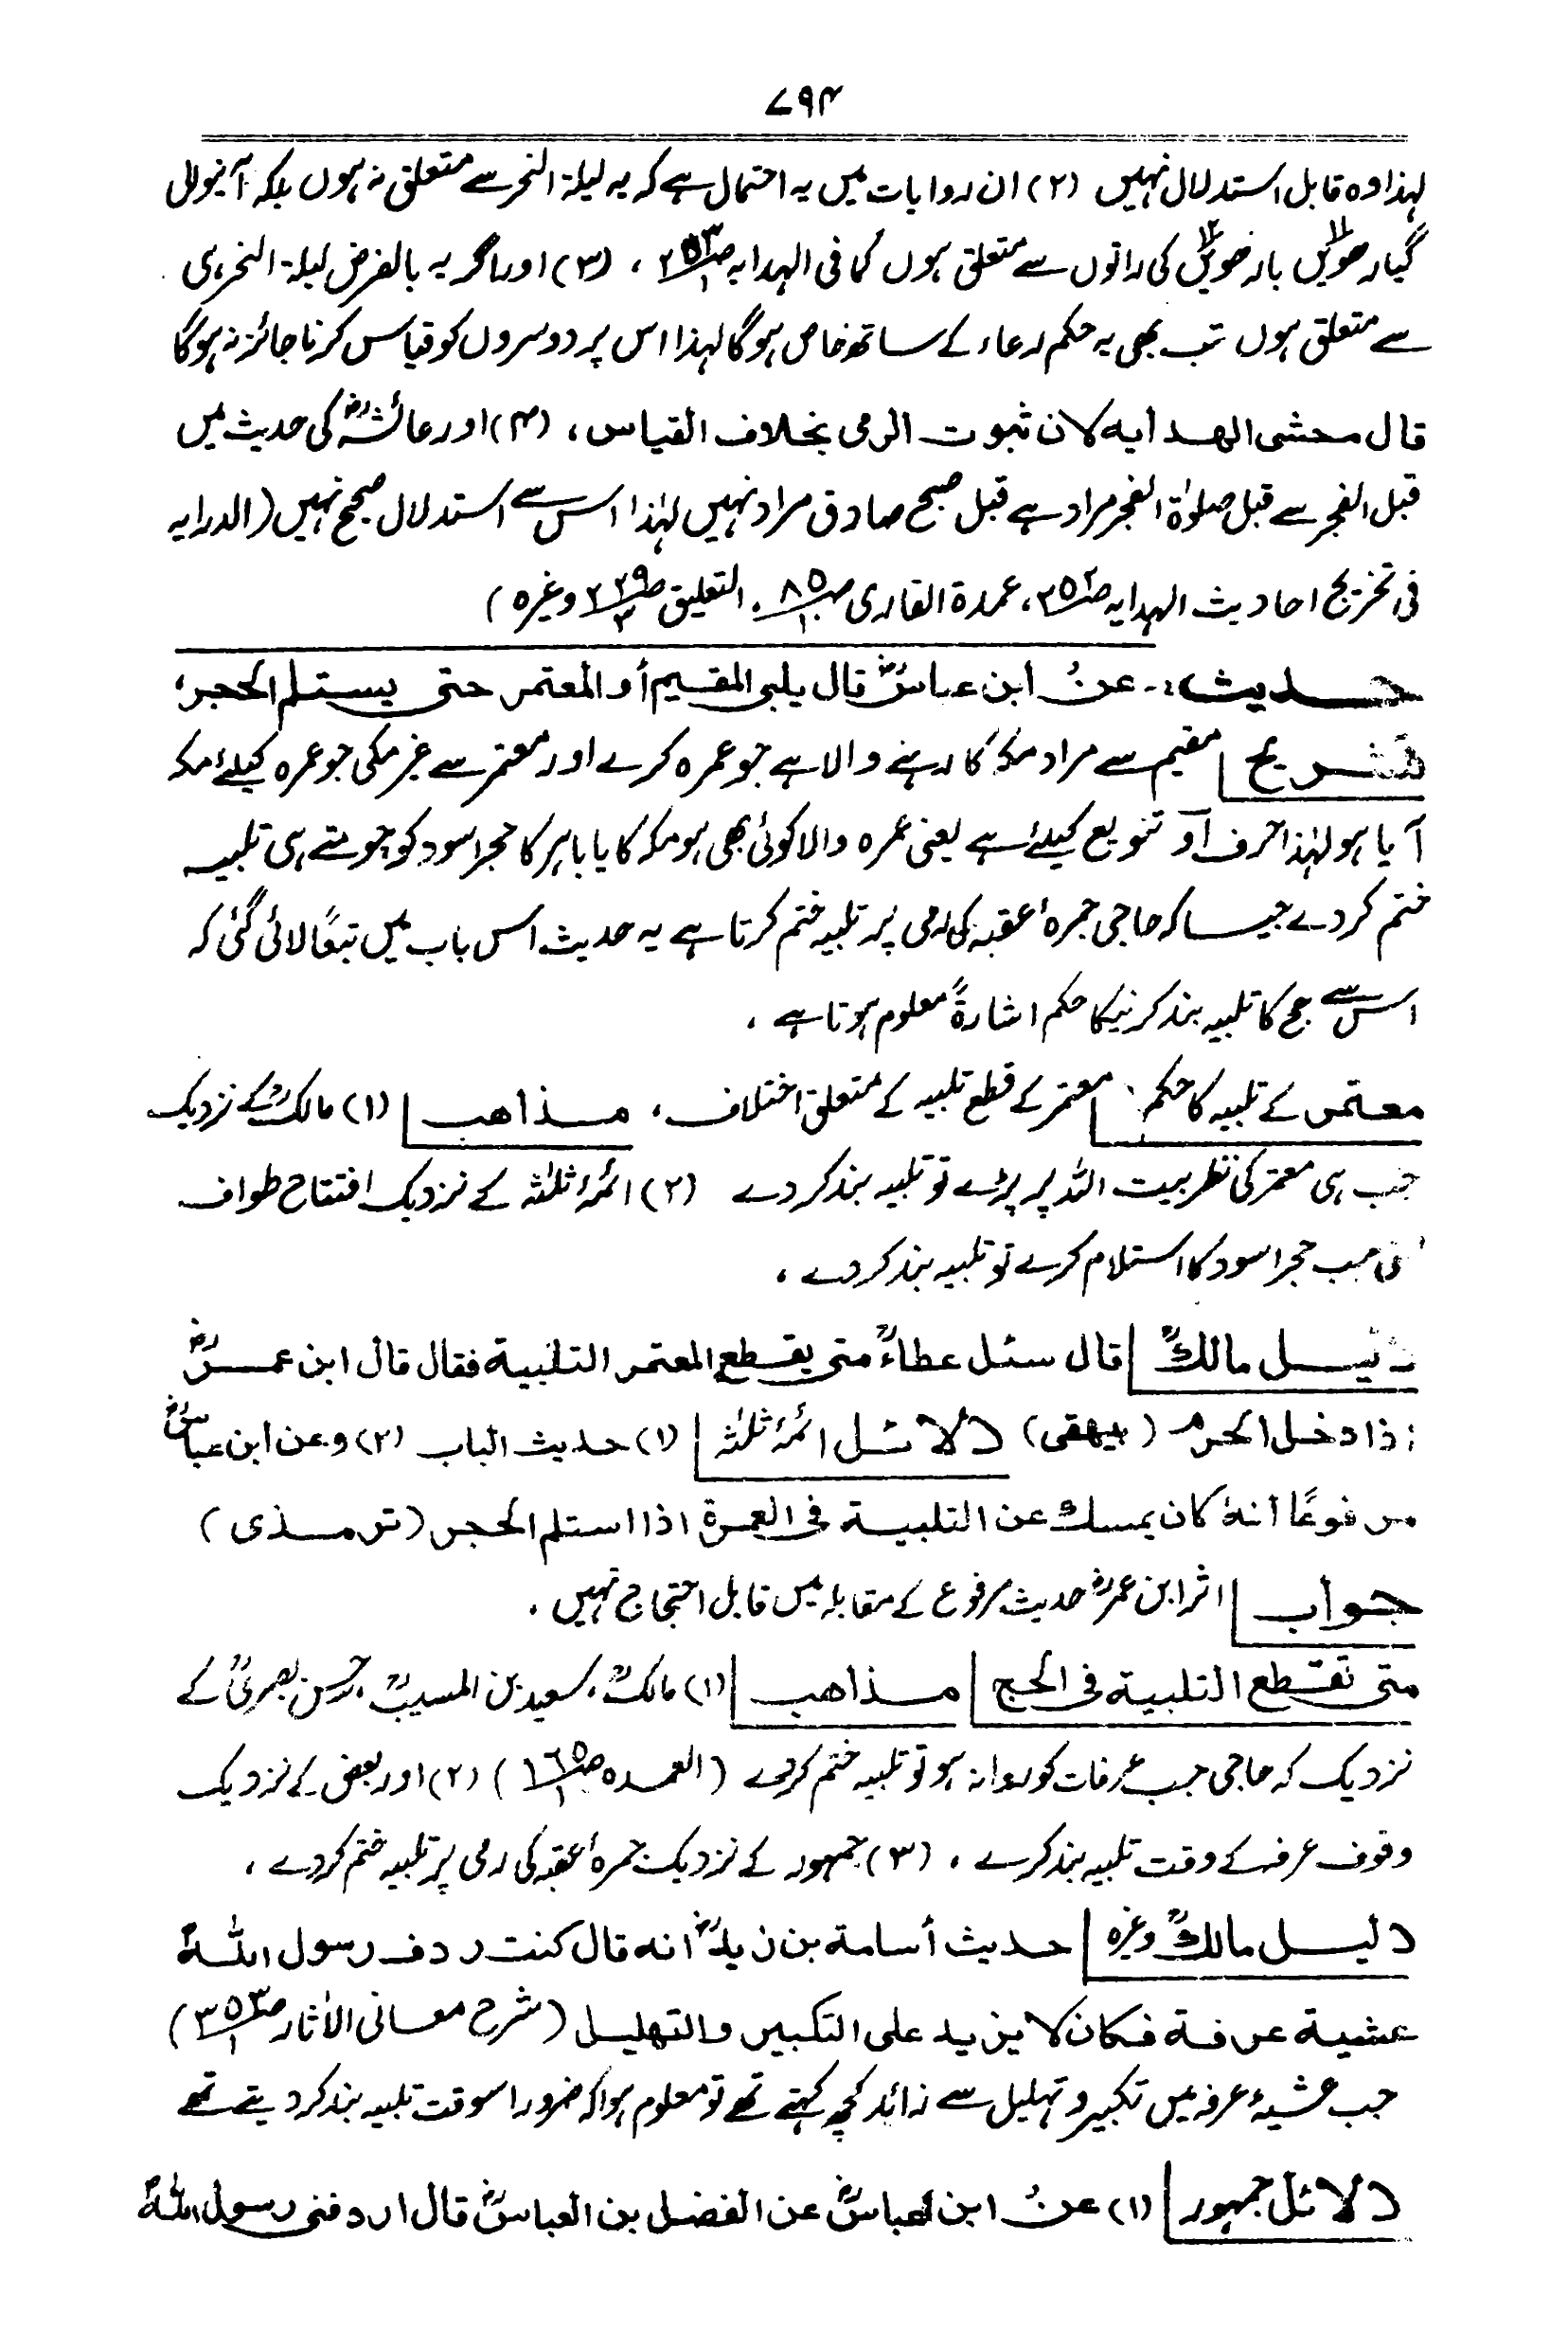 ۷۹۴
لہذا وہ قابل استدلال نہیں (۲) ان روایات میں یہ احتمال ہے کہ یہ لیلۃ النحر سے متعلق نہ ہوں بلکہ آنیوالی
گیارھویں بارھویں کی راتوں سے متعلق ہوں کما فی الہدایہ ، (۳) اور اگر یہ بالفرض لیلۃ النحر ہی
سے متعلق ہوں تب بھی یہ حکم رعاء کے ساتھ خاص ہوگا لہذا اس پر دوسروں کو قیاس کرنا جائز نہ ہوگا
قال محشی الھدایہ لان ثبوت الرمی بخلاف القیاس ، (۴) اور عائشہؓ کی حدیث میں
قبل الفجر سے قبل صلوٰۃ الفجر مراد ہے قبل صبح صادق مراد نہیں لہٰذا اس سے استدلال صحیح نہیں (الدرایہ
فی تخریج احادیث الہدایہ ، عمدۃ القاری ص۸۵/۱۰ ، التعلیق وغیرہ )
حدیث :۔ عن ابن عباسؓ قال یلبی المقیم أو المعتمر حتی یستلم الحجر ،
تشریح | مقیم سے مراد مکہ کا رہنے والا ہے جو عمرہ کرے اور معتمر سے غیر مکی جو عمرہ کیلئے مکہ
آیا ہو لہٰذا حرف أو تنویع کیلئے ہے یعنی عمرہ والا کوئی بھی ہو مکہ کا یا باہر کا حجر اسود کو چومتے ہی تلبیہ
ختم کردے جیسا کہ حاجی جمرۂ عقبہ کی رمی پر تلبیہ ختم کرتا ہے یہ حدیث اس باب میں تبعًا لائی گئی کہ
اس سے حج کا تلبیہ بند کرنیکا حکم اشارۃً معلوم ہوتا ہے ،
معتمر کے تلبیہ کا حکم | معتمر کے قطع تلبیہ کے متعلق اختلاف ، مذاھب | (۱) مالکؒ کے نزدیک
جب ہی معتمر کی نظر بیت اللہ پر پڑے تو تلبیہ بند کردے (۲) ائمۂ ثلثہ کے نزدیک افتتاح طواف
جب حجر اسود کا استلام کرے تو تلبیہ بند کردے ،
دلیل مالکؒ | قال سئل عطاءؒ متی یقطع المعتمر التلبیة فقال قال ابن عمرؓ
اذا دخل الحرم (بیھقی) دلائل ائمۂ ثلثہ | (۱) حدیث الباب (۲) وعن ابن عباسؓ
مرفوعًا أنه کان یمسك عن التلبیة فی العمرة اذا استلم الحجر (ترمذی)
جواب | اثر ابن عمرؓ حدیث مرفوع کے مقابلہ میں قابل احتجاج نہیں ،
متی تقطع التلبیة فی الحج | مذاھب | (۱) مالکؒ ، سعید بن المسیبؒ ، حسن بصریؒ کے
نزدیک کہ حاجی جب عرفات کو روانہ ہو تو تلبیہ ختم کردے (العمدہ ) (۲) اور بعض کے نزدیک
وقوف عرفہ کے وقت تلبیہ بند کرے ، (۳) جمہور کے نزدیک جمرۂ عقبہ کی رمی پر تلبیہ ختم کردے ،
دلیل مالکؒ وغیرہ | حدیث أسامة بن زیدؓ انه قال کنت ردف رسول اللهؐ
عشیة عرفة فکان لا یزید علی التکبیر والتهلیل (شرح معانی الآثار )
جب عشیۂ عرفہ میں تکبیر و تہلیل سے زائد کچھ کہتے تھے تو معلوم ہوا کہ ضرور اسوقت تلبیہ بند کر دیتے تھے
دلائل جمہور | (۱) عن ابن العباسؓ عن الفضل بن العباسؓ قال اردفنی رسول اللهؐ